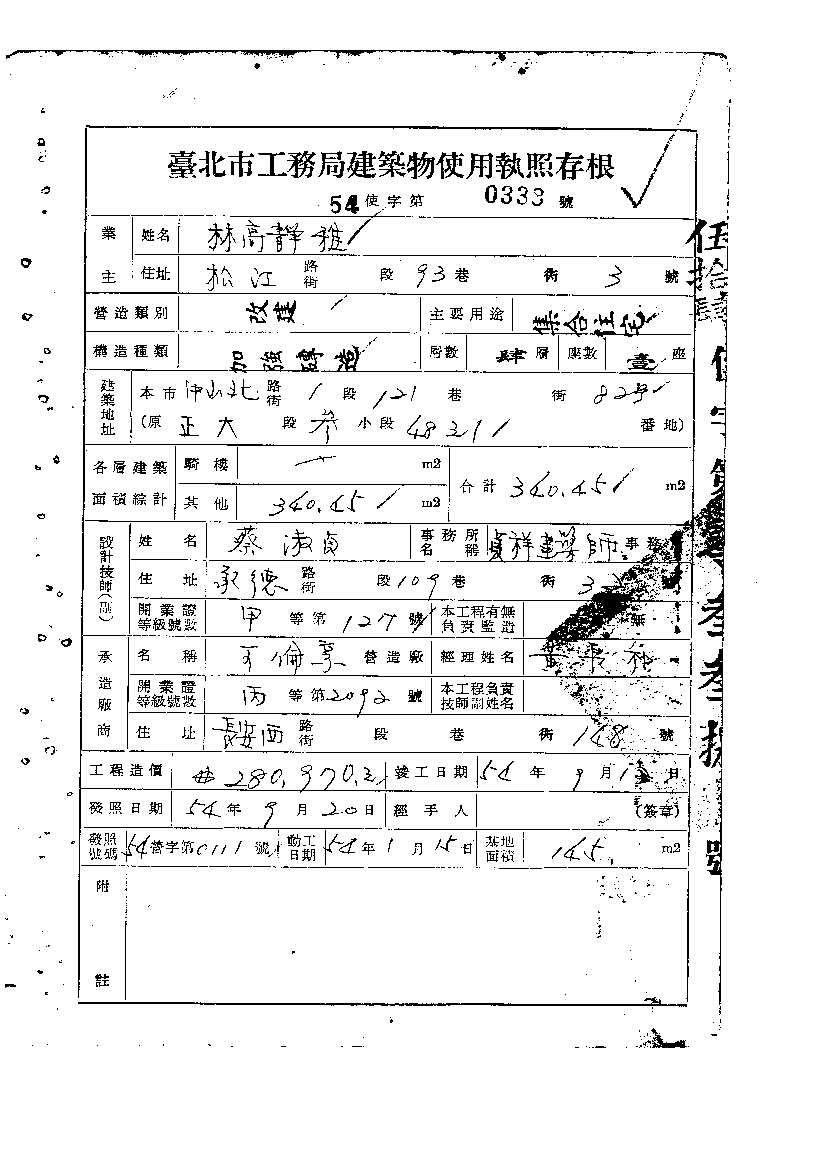 臺北市工務局建築物使用執照存根
54使字第0333號
業主 姓名 林高靜雅
住址 松江 路街 段 93巷 街 3 號
營造類別 改建 主要用途 集合住宅
構造種類 加強磚造 層數 肆層 座數 壹座
建築地址 本市中山北路街 1段 121巷 街 82號
(原 正大 段 參小段 48 番地)
各層建築面積綜計 騎樓 m2 合計 340.45 m2
其他 340.45 m2
設計技師(副) 姓名 蔡淑貞 事務所名稱 建築師事務
住址 承德 路街 段109巷 街 號
開業證等級號數 甲等第127號 本工程有無負責監造 無
承造廠商 名稱 營造廠 經理姓名
開業證等級號數 丙等第2092號 本工程負責技師副姓名
住址 長安西 路街 段 巷 街 148 號
工程造價 280,970 竣工日期 54年9月 日
發照日期 54年9月20日 經手人 (簽章)
發照號碼 54營字第0111號 動工日期 54年1月15日 基地面積 145. m2
附註
伍拾肆使字第 叁叁 號